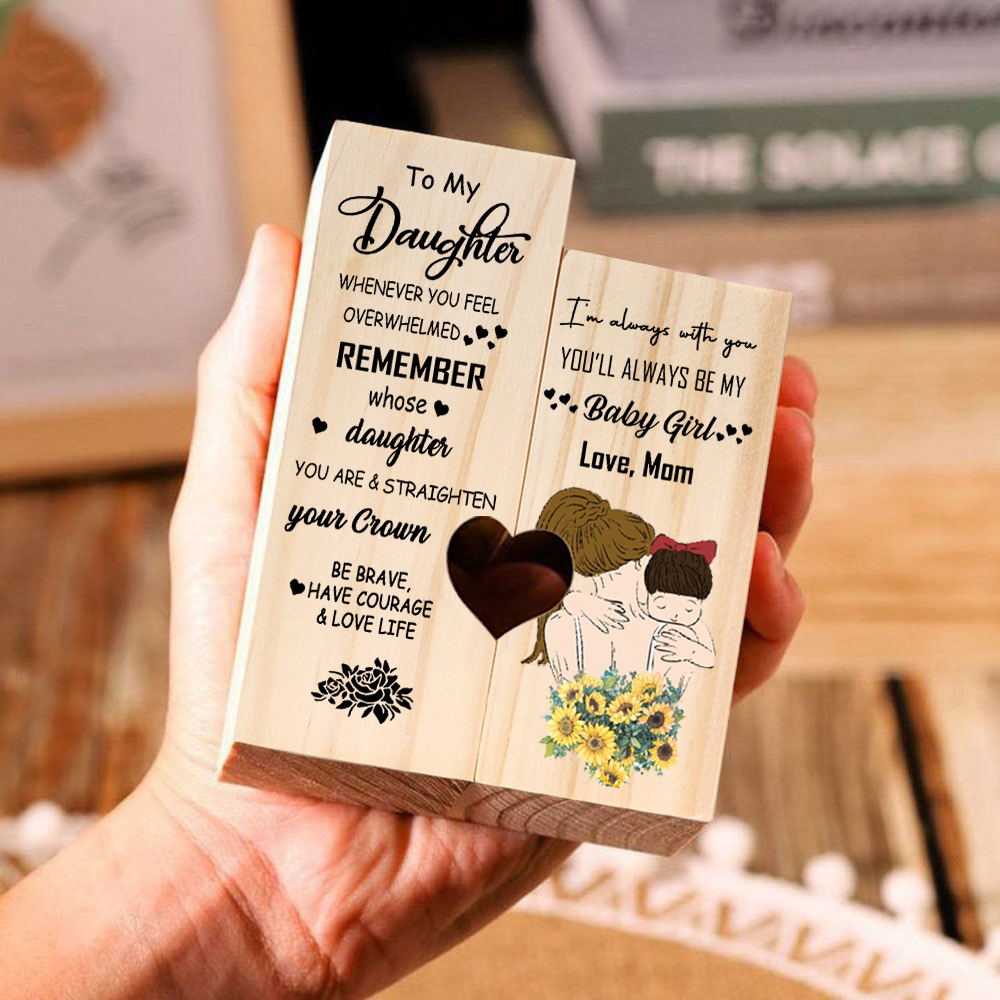 To My
Daughter
WHENEVER YOU FEEL
OVERWHELMED
REMEMBER
whose
daughter
YOU ARE & STRAIGHTEN
your Crown
BE BRAVE,
HAVE COURAGE
& LOVE LIFE
I'm always with you
YOU'LL ALWAYS BE MY
Baby Girl
Love, Mom
THE SOLACE